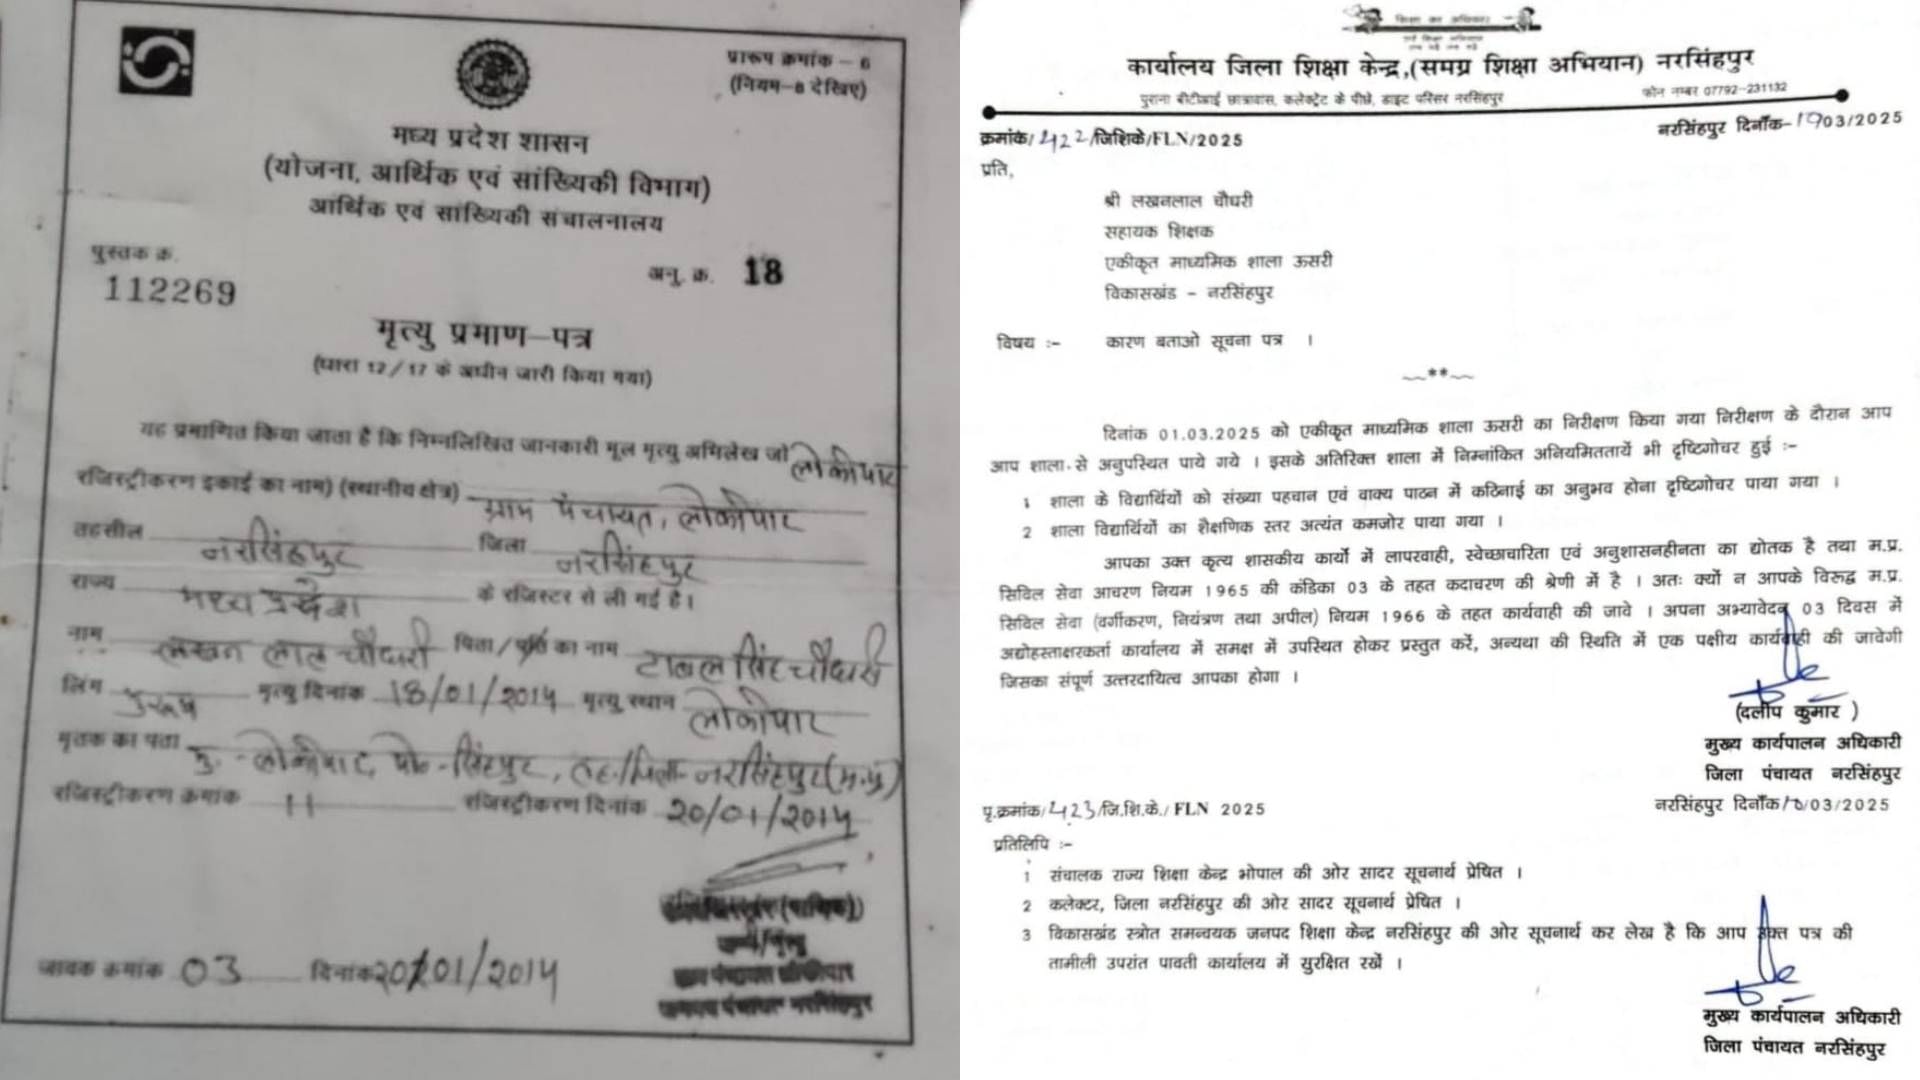 प्रारूप क्रमांक – 6
(नियम–8 देखिए)
मध्य प्रदेश शासन
(योजना, आर्थिक एवं सांख्यिकी विभाग)
आर्थिक एवं सांख्यिकी संचालनालय
पुस्तक क्र.
112269
अनु. क्र. 18
मृत्यु प्रमाण–पत्र
(धारा 12/17 के अधीन जारी किया गया)
यह प्रमाणित किया जाता है कि निम्नलिखित जानकारी मूल मृत्यु अभिलेख जो लोकीपार
रजिस्ट्रीकरण इकाई का नाम) (स्थानीय क्षेत्र) ग्राम पंचायत, लोकीपार
तहसील नरसिंहपुर जिला नरसिंहपुर
राज्य मध्य प्रदेश के रजिस्टर से ली गई है।
नाम लखन लाल चौधरी पिता/पति का नाम सिंह चौधरी
लिंग पुरूष मृत्यु दिनांक 18/01/2014 मृत्यु स्थान लोकीपार
मृतक का पता मु.-लोकीपार, पो-सिंहपुर, तह./जिला-नरसिंहपुर (म.प्र)
रजिस्ट्रीकरण क्रमांक 11 रजिस्ट्रीकरण दिनांक 20/01/2014
जन्म/मृत्यु
जावक क्रमांक 03 दिनांक 20/01/2014
जनपद पंचायत नरसिंहपुर
कार्यालय जिला शिक्षा केन्द्र,(समग्र शिक्षा अभियान) नरसिंहपुर
पुराना बीटीआई छात्रावास, कलेक्ट्रेट के पीछे, डाइट परिसर नरसिंहपुर फोन नम्बर 07792-231132
क्रमांक/422/जिशिके/FLN/2025 नरसिंहपुर दिनाँक-19/03/2025
प्रति,
श्री लखनलाल चौधरी
सहायक शिक्षक
एकीकृत माध्यमिक शाला ऊसरी
विकासखंड – नरसिंहपुर
विषय :– कारण बताओ सूचना पत्र ।
~~**~~
दिनांक 01.03.2025 को एकीकृत माध्यमिक शाला ऊसरी का निरीक्षण किया गया निरीक्षण के दौरान आप
आप शाला से अनुपस्थित पाये गये । इसके अतिरिक्त शाला में निम्नांकित अनियमिततायें भी दृष्टिगोचर हुई :–
1 शाला के विद्यार्थियों को संख्या पहचान एवं वाक्य पाठन में कठिनाई का अनुभव होना दृष्टिगोचर पाया गया ।
2 शाला विद्यार्थियों का शैक्षणिक स्तर अत्यंत कमजोर पाया गया ।
आपका उक्त कृत्य शासकीय कार्यो में लापरवाही, स्वेच्छाचारिता एवं अनुशासनहीनता का द्योतक है तथा म.प्र.
सिविल सेवा आचरण नियम 1965 की कंडिका 03 के तहत कदाचरण की श्रेणी में है । अतः क्यों न आपके विरूद्ध म.प्र.
सिविल सेवा (वर्गीकरण, नियंत्रण तथा अपील) नियम 1966 के तहत कार्यवाही की जावे । अपना अभ्यावेदन 03 दिवस में
अद्योहस्ताक्षरकर्ता कार्यालय में समक्ष में उपस्थित होकर प्रस्तुत करें, अन्यथा की स्थिति में एक पक्षीय कार्यवाही की जावेगी
जिसका संपूर्ण उत्तरदायित्व आपका होगा ।
(दलीप कुमार )
मुख्य कार्यपालन अधिकारी
जिला पंचायत नरसिंहपुर
पृ.क्रमांक/423/जि.शि.के./ FLN 2025 नरसिंहपुर दिनाँक/10/03/2025
प्रतिलिपि :–
1 संचालक राज्य शिक्षा केन्द्र भोपाल की ओर सादर सूचनार्थ प्रेषित ।
2 कलेक्टर, जिला नरसिंहपुर की ओर सादर सूचनार्थ प्रेषित ।
3 विकासखंड स्त्रोत समन्वयक जनपद शिक्षा केन्द्र नरसिंहपुर की ओर सूचनार्थ कर लेख है कि आप उक्त पत्र की
तामीली उपरांत पावती कार्यालय में सुरक्षित रखें ।
मुख्य कार्यपालन अधिकारी
जिला पंचायत नरसिंहपुर